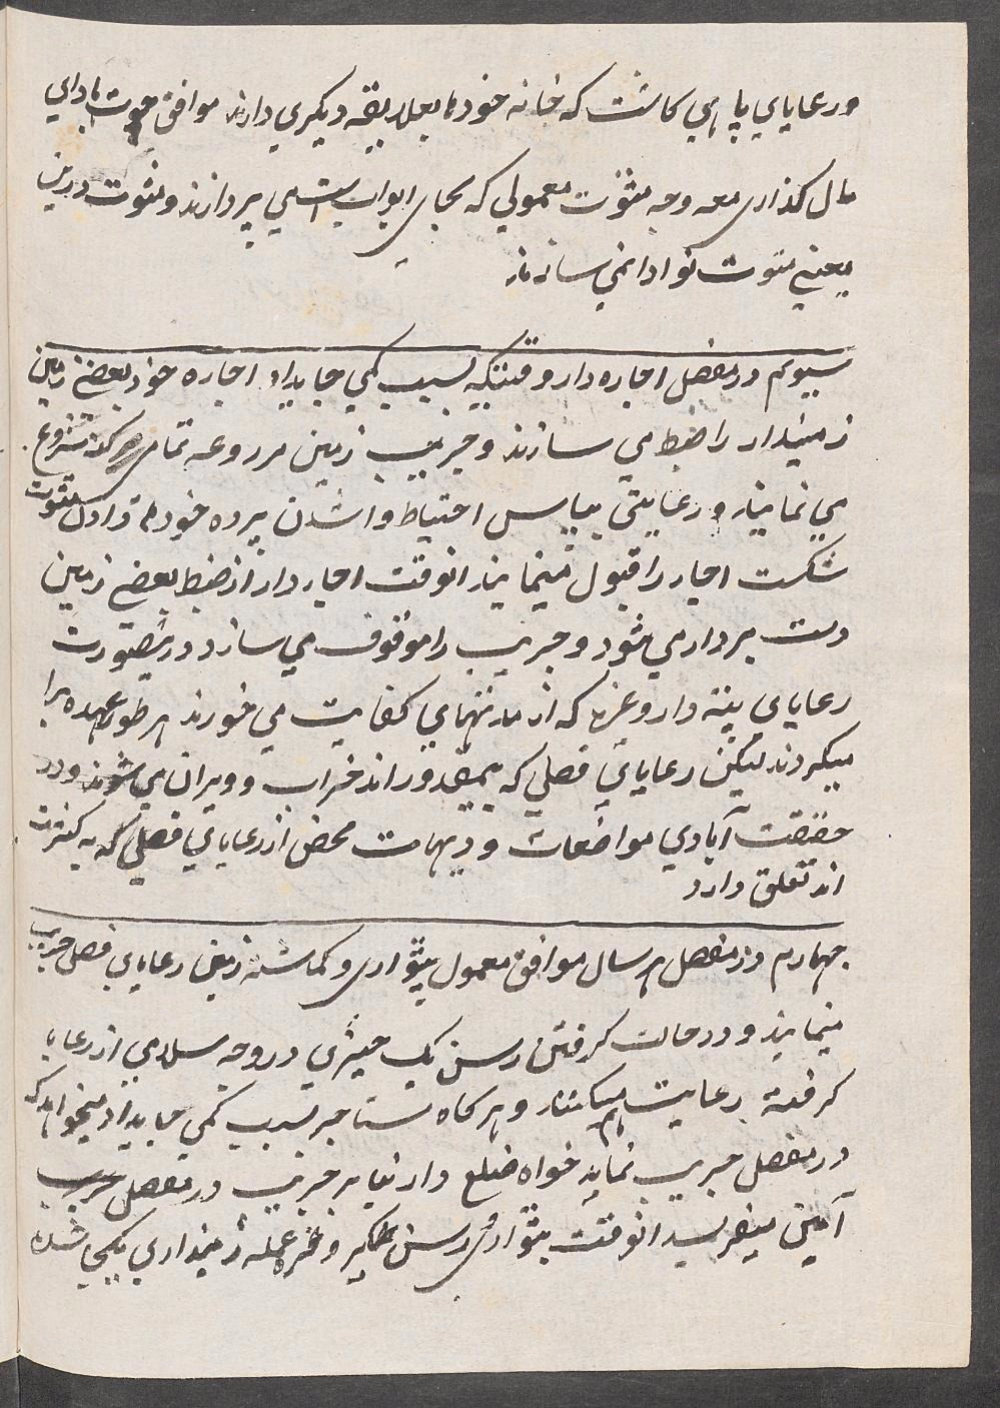 و رعایای پاهی کاشت که خانه خود ها بعلاقه دیگری دارند موافق جوت بادای
مال کذاری معه وجه متهوت معمولی که بجای ابواب ست می پردازند و متهوت درین
یعنی متوت نو ادا نمی سازند
سیوم در مفصل اجاره دار وقتیکه بسبب کمی جایداد اجاره خود بعضی زمین
زمیندار را ضبط می سازند و جریب زمین مزروعه تمامی شروع
می نمایند و رعایتی بپاس احتیاط وا شدن پرده خودها
شکست اجاره را قبول مینمایند انوقت اجاره دار از ضبط بعضی زمین
دست بردار می شود و جریب را موقوف می سازد درینصورت
رعایای پته دار وغیره که از مدتهای کفایت می خورند هر طور عهده برا
میکردند لیکن رعایای فصلی که بیمقدور اند خراب و ویران می شوند و در
حقیقت آبادی مواضعات و دیهات محض از رعایای فصلی که به کثرت
اند تعلق دارد
چهارم در مفصل هر سال موافق معمول پتواری و کماشته زمین رعایای فصلی جریب
مینمایند و در حالت کرفتن رسن یک چیزی در وجه سلامی از رعایا
کرفته رعایت میکنند و هرکاه مستاجر بسبب کمی جایداد میخواهد که
در مفصل جریب نماید خواه ضلع دار بنابر جریب در مفصل
آمین میفرسد انوقت پتواری و رسن کیر و غیره عمله زمینداری یکجا شده